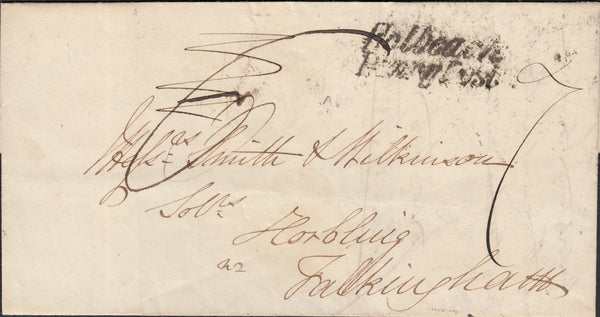 Holbeach
Penny Post
7
Mess^es Smith & Wilkinson
Sol^rs
Horbling
n^r
Falkingham